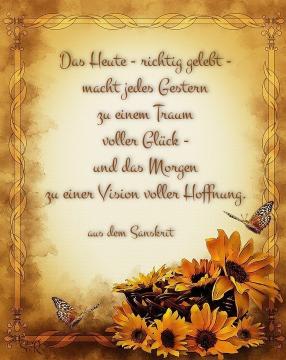 Das Heute - richtig gelebt -
macht jedes Gestern
zu einem Traum
voller Glück -
und das Morgen
zu einer Vision voller Hoffnung.
aus dem Sanskrit